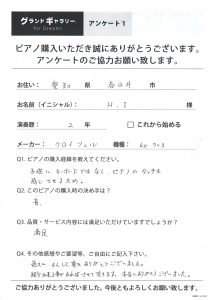 グランドギャラリー
For Dreams
アンケート1
ピアノ購入いただき誠にありがとうございます。
アンケートのご協力お願い致します。
お住い: 愛知 県 春日井 市
お名前(イニシャル): H.I 様
演奏歴: 2 年 □ これから始める
メーカー: クロイツェル 機種:
Q1. ピアノの購入経緯を教えてください。
子供に キーボードではなく、ピアノの タッチを
感じてもらうため。
Q2. このピアノの購入時の決め手は?
音。
Q3. 品質・サービス内容には満足いただけていますでしょうか?
満足
Q4. その他感想やご要望等、ご自由にご記入下さい。
ありがとうございました。
ご協力ありがとうございました。今後ともよろしくお願い致します。